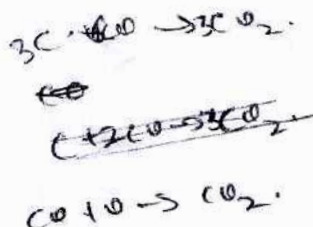 3C + CO → 3CO₂.
CO
C + 2CO → 3CO₂.
CO + O → CO₂.